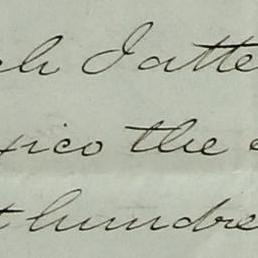 ch Patte
xico the
t hundre